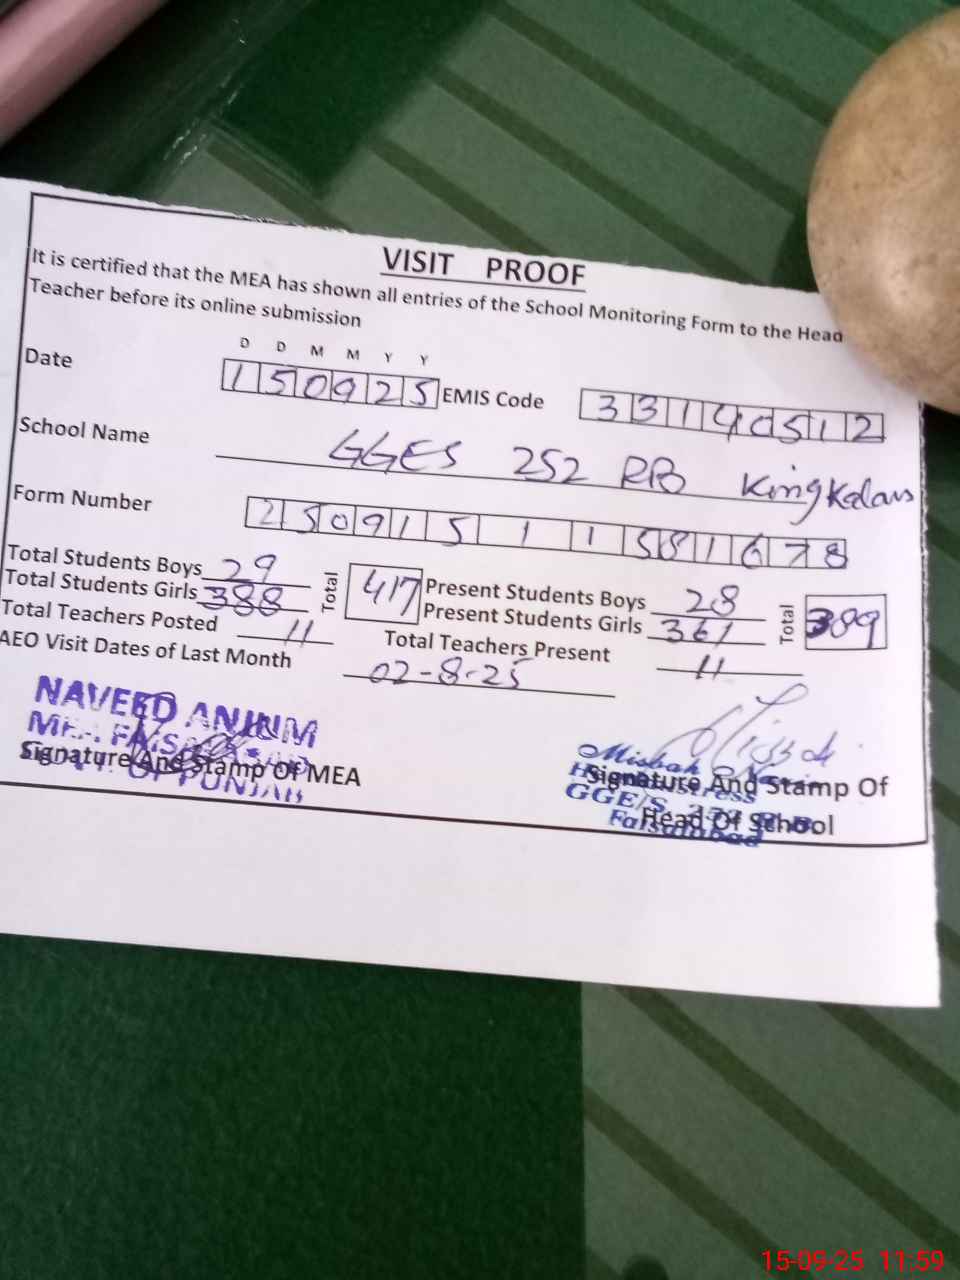 VISIT PROOF
It is certified that the MEA has shown all entries of the School Monitoring Form to the Head
Teacher before its online submission
D D M M Y Y
Date 150925 EMIS Code 33140512
School Name GGES 252 RB King Kalan
Form Number 25091511581678
Total Students Boys 29 Total 417 Present Students Boys 28 Total 389
Total Students Girls 388 Present Students Girls 361
Total Teachers Posted 11 Total Teachers Present 11
AEO Visit Dates of Last Month 02-8-25
NAVEED ANJUM
MEA FAISALABAD
GOVT. OF PUNJAB
Signature And Stamp Of MEA
Misbah
Headmistress
GGE/S
Faisalabad
Signature And Stamp Of
Head Of School
15-09-25 11:59